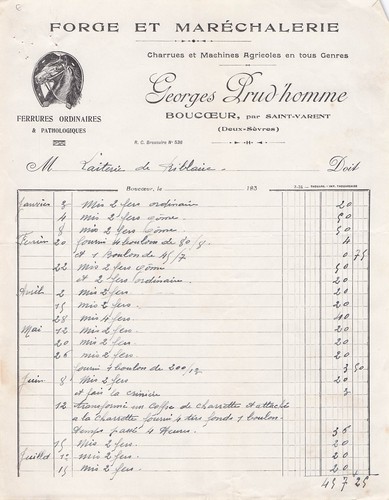 FORGE ET MARÉCHALERIE
Charrues et Machines Agricoles en tous Genres
Georges Prud'homme
BOUCŒUR, par SAINT-VARENT
(Deux-Sèvres)
FERRURES ORDINAIRES
& PATHOLOGIQUES
R. C. Bressuire N° 539
M Laiterie de Riblaire Doit
Boucœur, le 193
Janvier 3 Mis 2 fers ordinaire 20
4 mis 2 fers 50
8 mis 2 fers 50
20 fourni 4 boulons de 80/8 4
et 1 Boulon de 45/7 0 75
22 Mis 2 fers 50
et 2 fers ordinaire 20
Avril 2 mis 2 fers 20
15 mis 2 fers 20
28 mis 4 fers 40
Mai 12 Mis 2 fers 20
20 mis 2 fers 20
26 mis 2 fers 20
fourni 7 boulon de 200/ 3 50
Juin 8 Mis 2 fers 20
et fait la 3
12 transformé un Coffre de charrette et attaché
a la charrette fourni 4 tiers fonds 1 boulon
temps passé 4 Heures 36
15 Mis 2 fers 20
Juillet 12 Mis 2 fers 20
15 Mis 2 fers 20
457 25